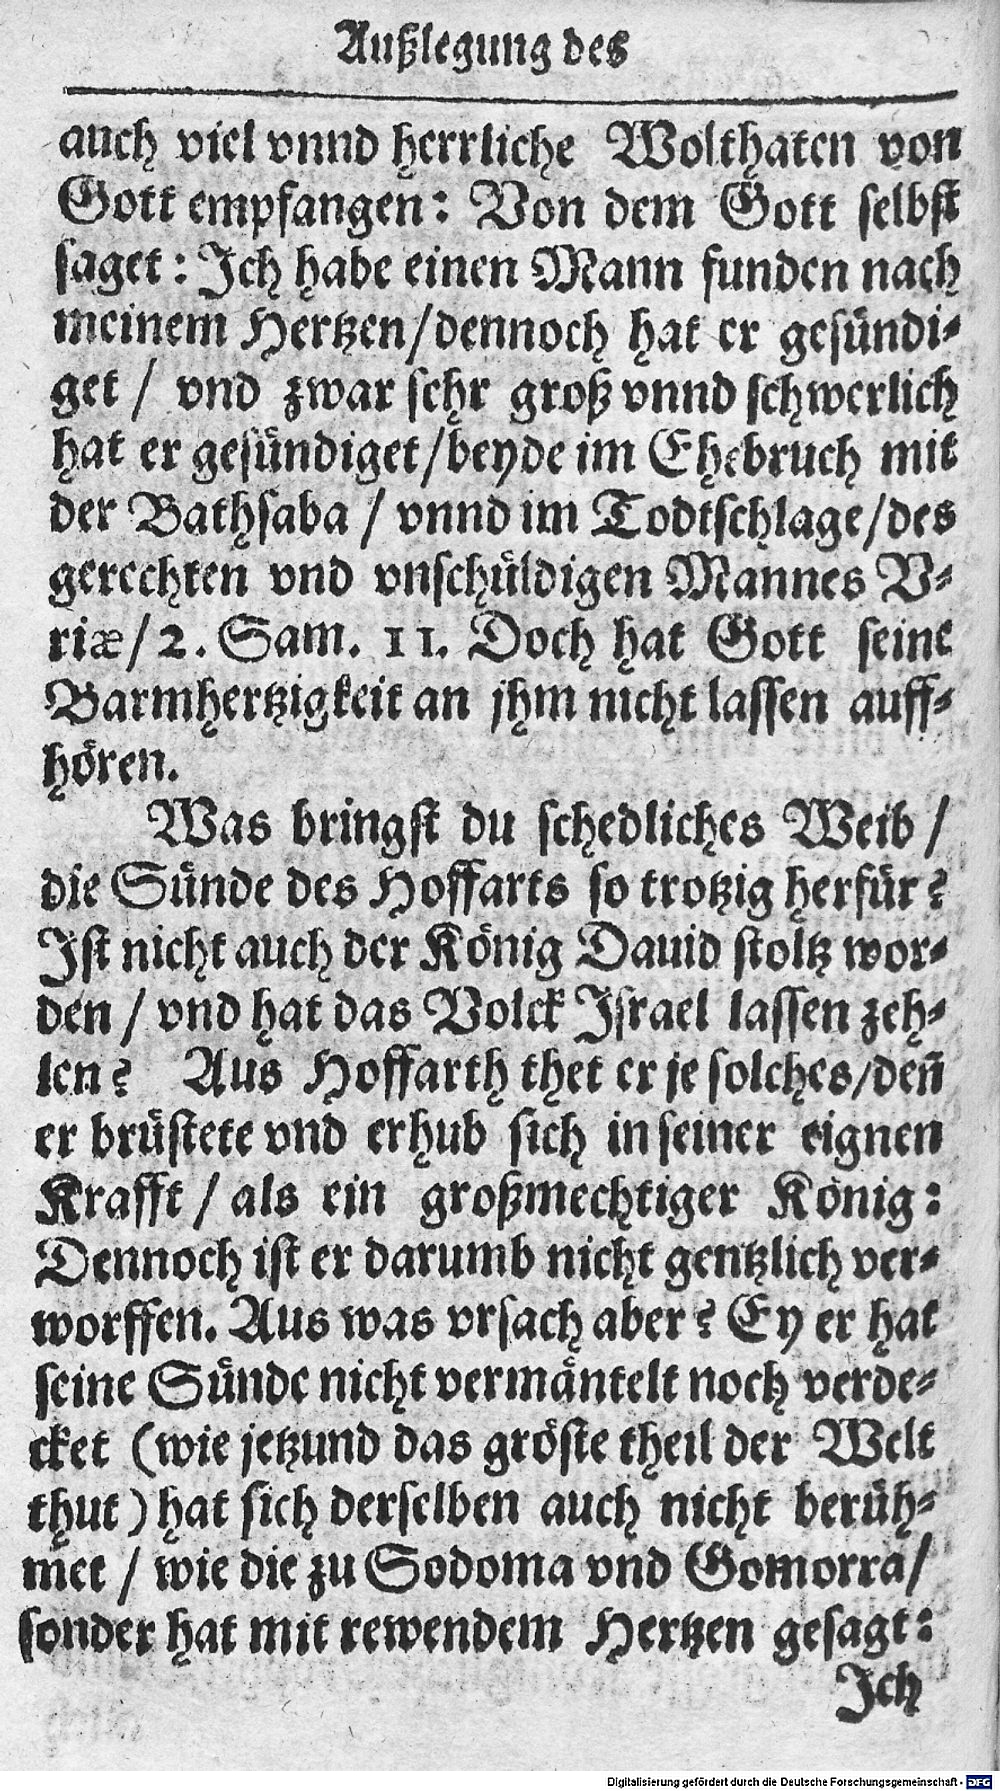 Außlegung des
auch viel vnnd herrliche Wolthaten von
Gott empfangen: Von dem Gott selbst
saget: Ich habe einen Mann funden nach
meinem Hertzen/dennoch hat er gesündi-
get / vnd zwar sehr groß vnnd schwerlich
hat er gesündiget/beyde im Ehebruch mit
der Bathsaba / vnnd im Todtschlage/des
gerechten vnd vnschüldigen Mannes V-
riæ/2. Sam. 11. Doch hat Gott seine
Barmhertzigkeit an jhm nicht lassen auff-
hören.
Was bringst du schedliches Weib /
die Sünde des Hoffarts so trotzig herfür?
Ist nicht auch der König Dauid stoltz wor-
den / vnd hat das Volck Israel lassen zeh-
len? Aus Hoffarth thet er je solches/deñ
er brüstete vnd erhub sich in seiner eignen
Krafft / als ein großmechtiger König:
Dennoch ist er darumb nicht gentzlich ver-
worffen. Aus was vrsach aber? Ey er hat
seine Sünde nicht vermäntelt noch verde-
cket (wie jetzund das gröste theil der Welt
thut) hat sich derselben auch nicht berüh-
met / wie die zu Sodoma vnd Gomorra/
sonder hat mit rewendem Hertzen gesagt:
Ich
Digitalisierung gefördert durch die Deutsche Forschungsgemeinschaft - DFG